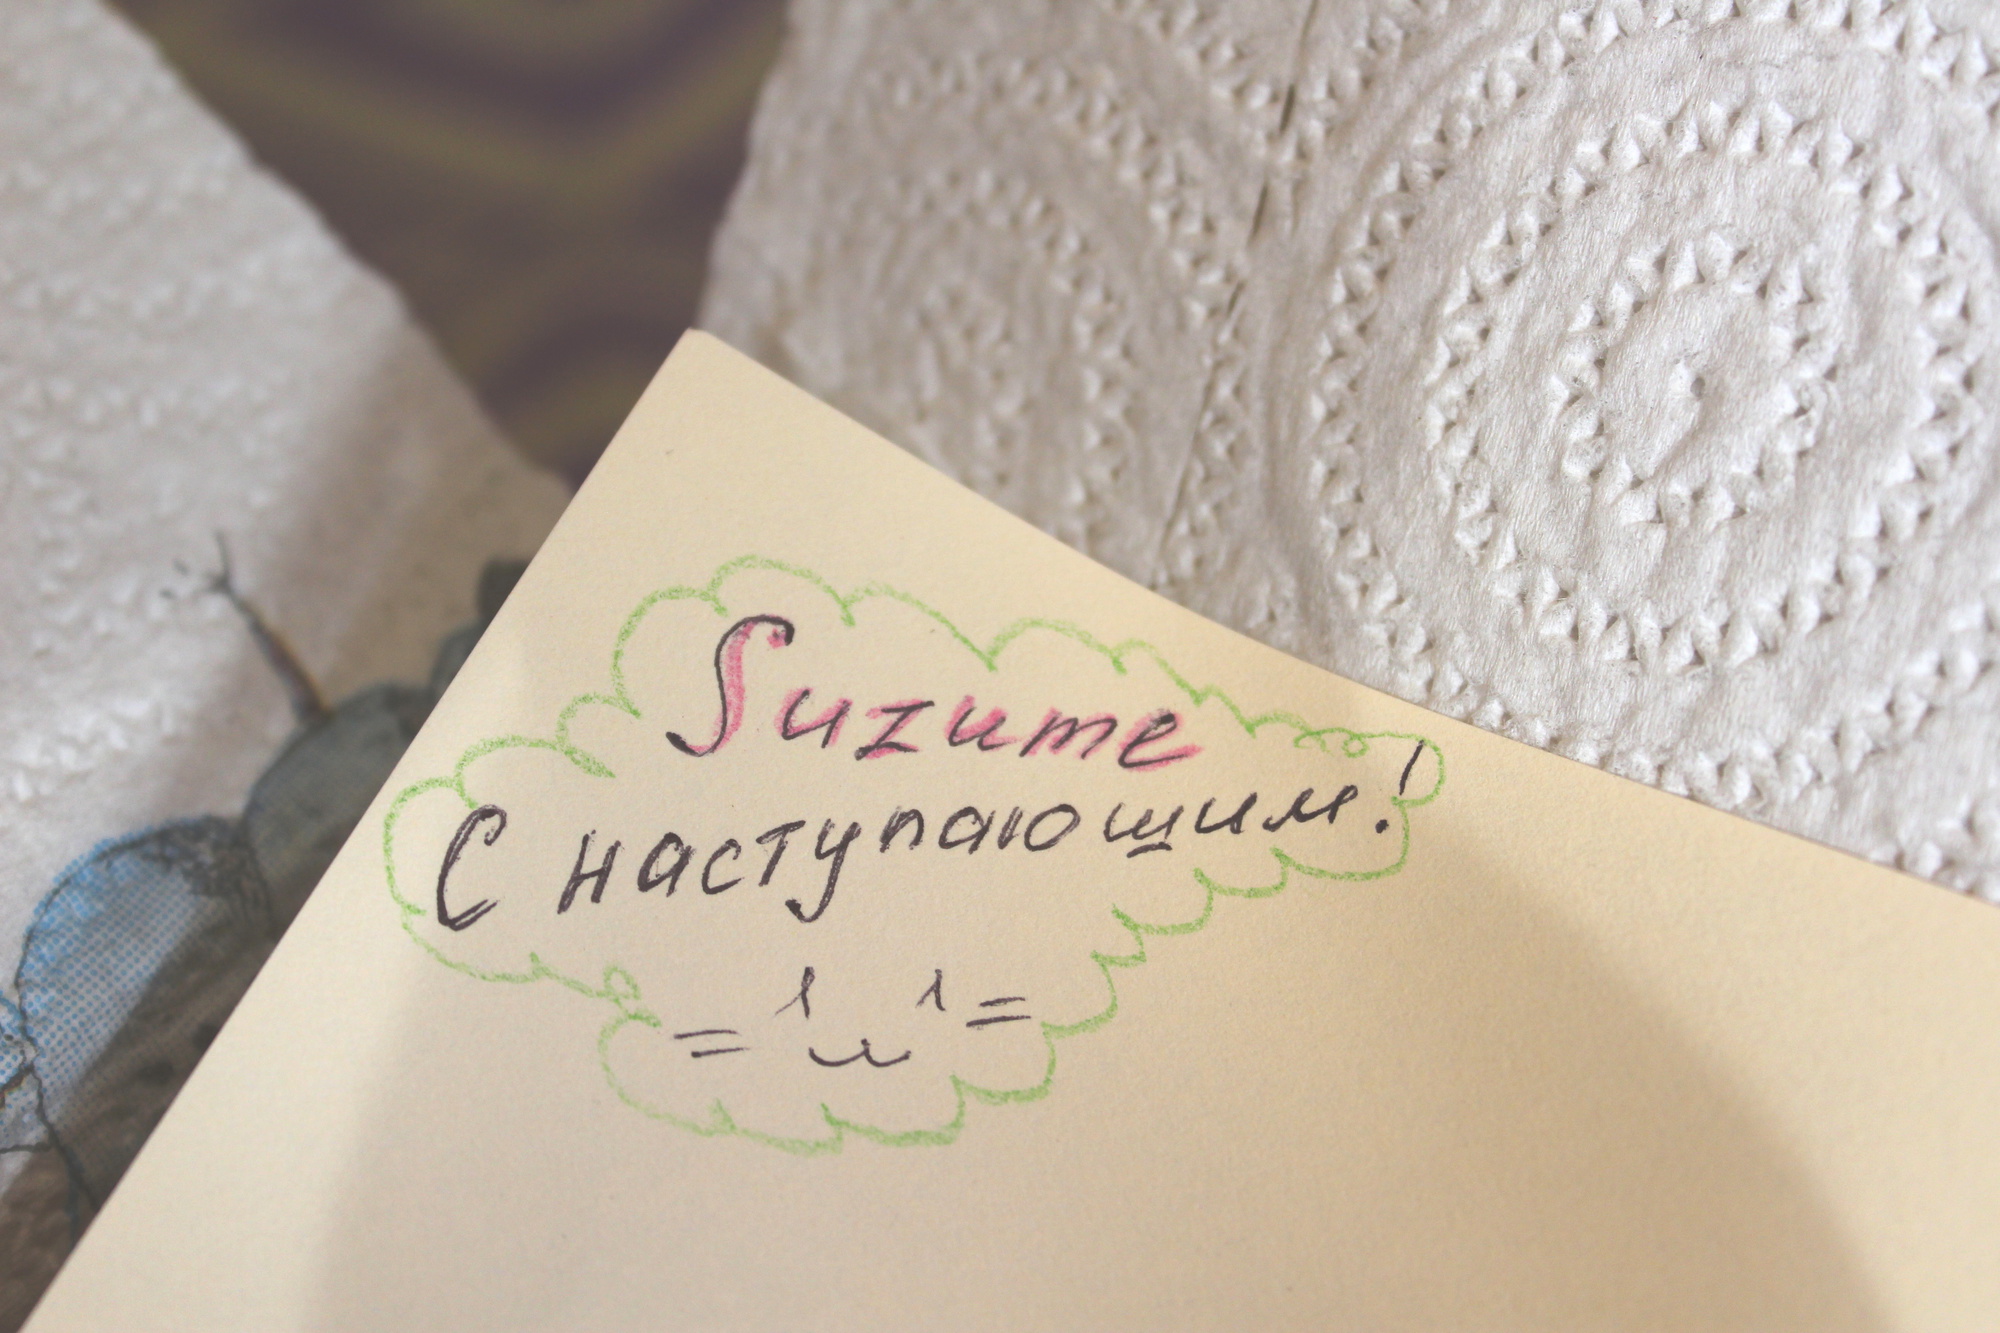 Suzume
С наступающим!
= ^ ω ^ =